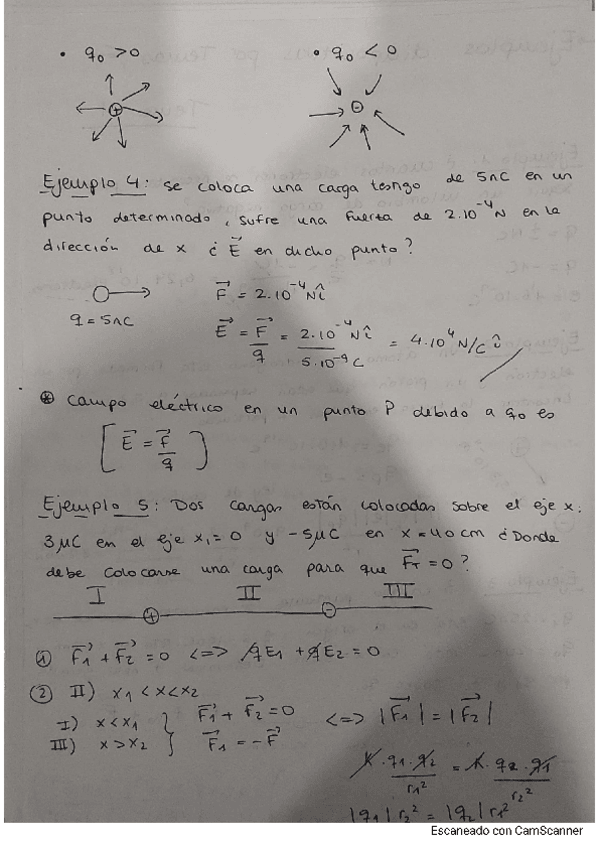 • q₀ > 0 • q₀ < 0
Ejemplo 4: se coloca una carga testigo de 5nC en un
punto determinado, sufre una fuerza de 2.10⁻⁴N en la
dirección de x ¿ E⃗ en dicho punto?
F⃗ = 2.10⁻⁴ N î
q = 5nC
E⃗ = F⃗/q = 2.10⁻⁴ N î / 5.10⁻⁹ C = 4.10⁴ N/C î
⊛ Campo eléctrico en un punto P debido a q₀ es
[ E⃗ = F⃗/q )
Ejemplo 5: Dos cargas están colocadas sobre el eje x:
3μC en el eje x₁ = 0 y -5μC en x = 40 cm ¿Donde
debe colocarse una carga para que F⃗T = 0?
I II III
① F⃗₁ + F⃗₂ = 0 <=> qE₁ + qE₂ = 0
② II) x₁ < x < x₂
I) x < x₁ } F⃗₁ + F⃗₂ = 0 <=> |F⃗₁| = |F⃗₂|
III) x > x₂ } F⃗₁ = -F⃗
K · q₁ · q₂ / r₁² = K · q₂ · q₁ / r₂²
|q₁| r₂² = |q₂| r₁²
Escaneado con CamScanner